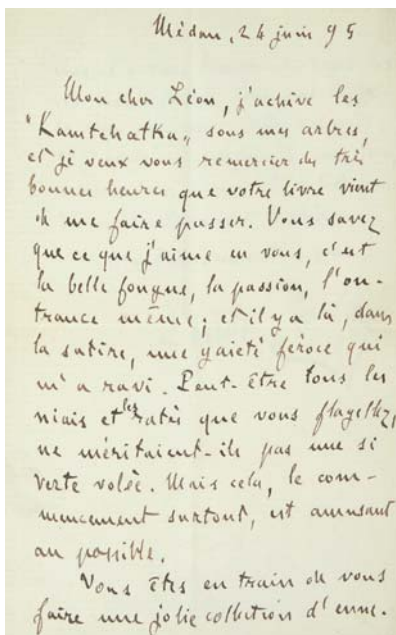 Médan, 24 juin 95
Mon cher Léon, j'achève les
"Kamtchatka" sous mes arbres,
et je veux vous remercier des très
bonnes heures que votre livre vient
de me faire passer. Vous savez
que ce que j'aime en vous, c'est
la belle fougue, la passion, l'ou-
trance même ; et il y a là, dans
la satire, une gaieté féroce qui
m'a ravi. Peut-être tous les
niais et les ratés que vous flagellez,
ne méritaient-ils pas une si
verte volée. Mais cela, le com-
mencement surtout, est amusant
au possible.
Vous êtes en train de vous
faire une jolie collection d'enne-